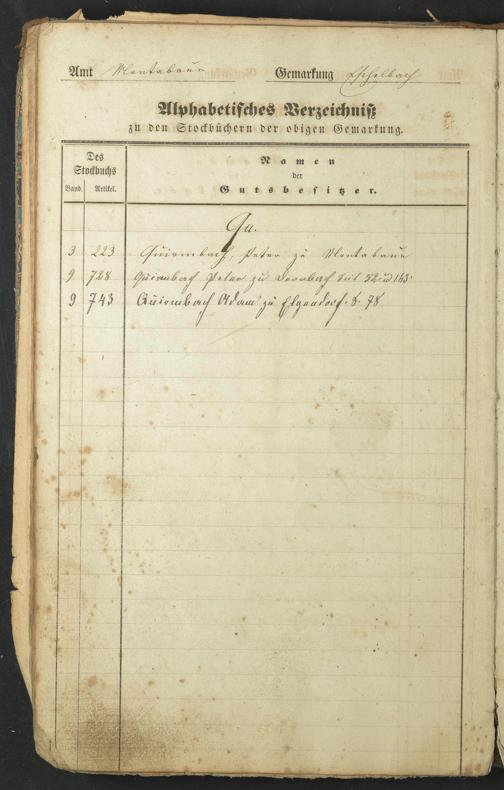 Amt Montabaur Gemarkung Eschelbach
Alphabetisches Verzeichniß
zu den Stockbüchern der obigen Gemarkung.
Des Stockbuchs
Band. Artikel.
Namen
der
Gutsbesitzer.
Qu.
3 223 Quirmbach, Peter zu Montabaur
9 728 Quirmbach Peter zu Dernbach Seit 52 u 163
9 743 Quirmbach Adam zu Elgendorf S. 78